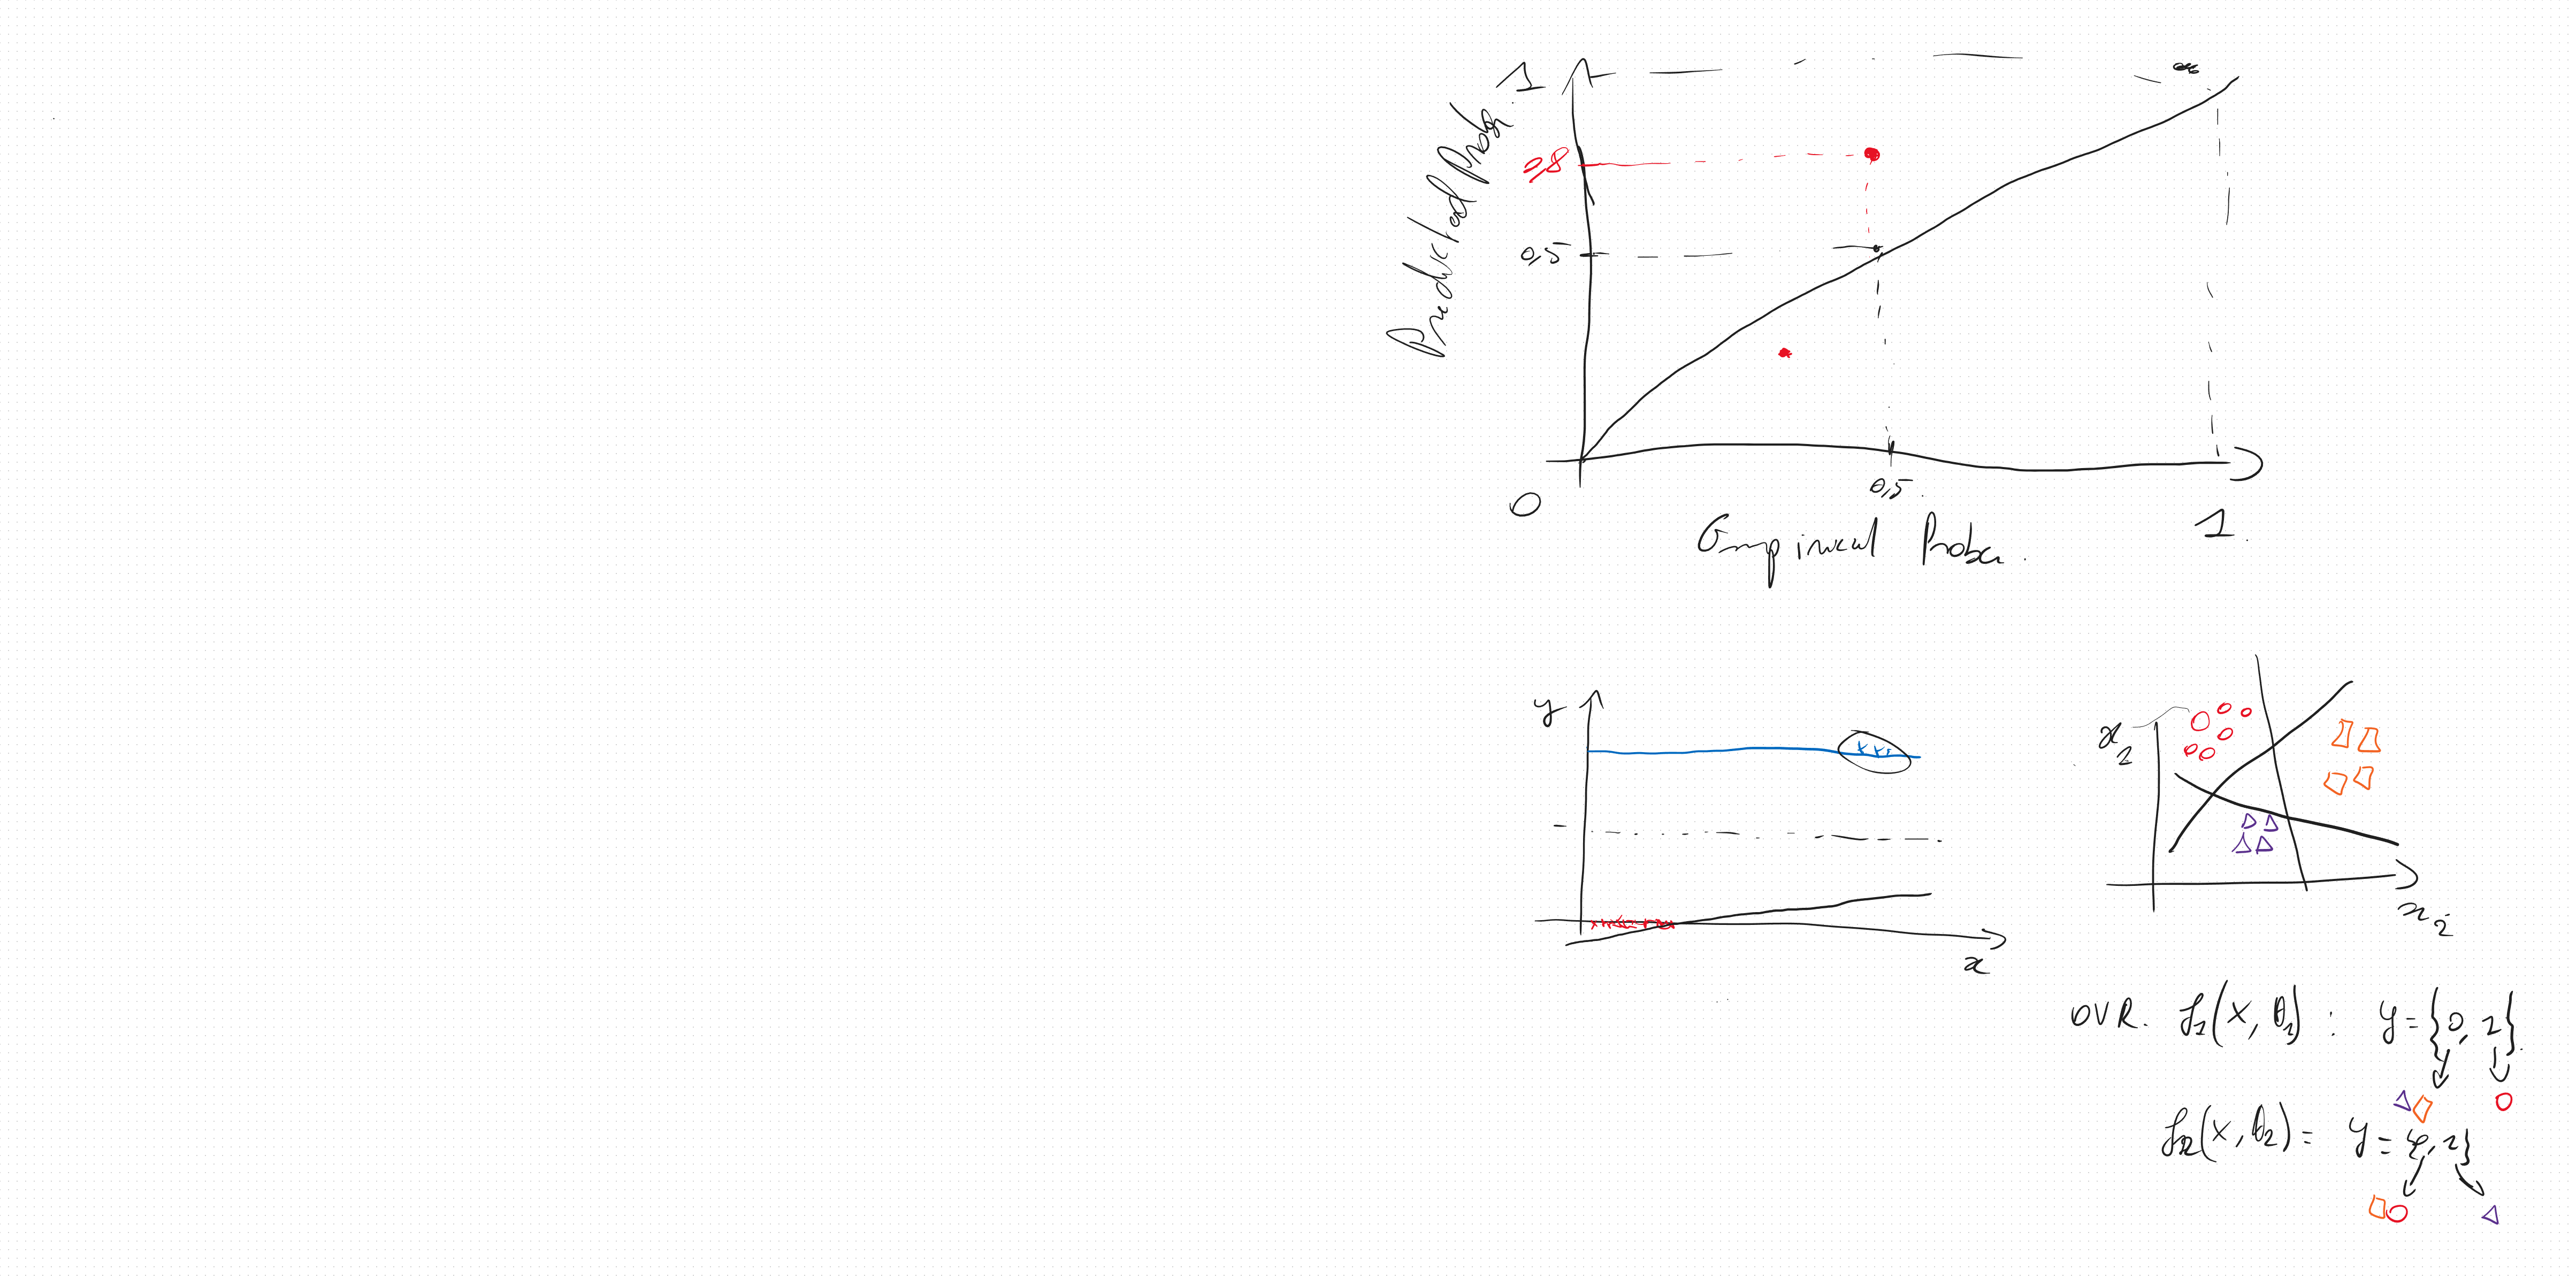 1
Predicted Proba.
0,8
0,5
0,5
0
1.
Empirical Proba.
y
x
x2
x2
OVR. f1(X, θ1) : y={0, 1}.
f2(X, θ2) = y={0, 1}